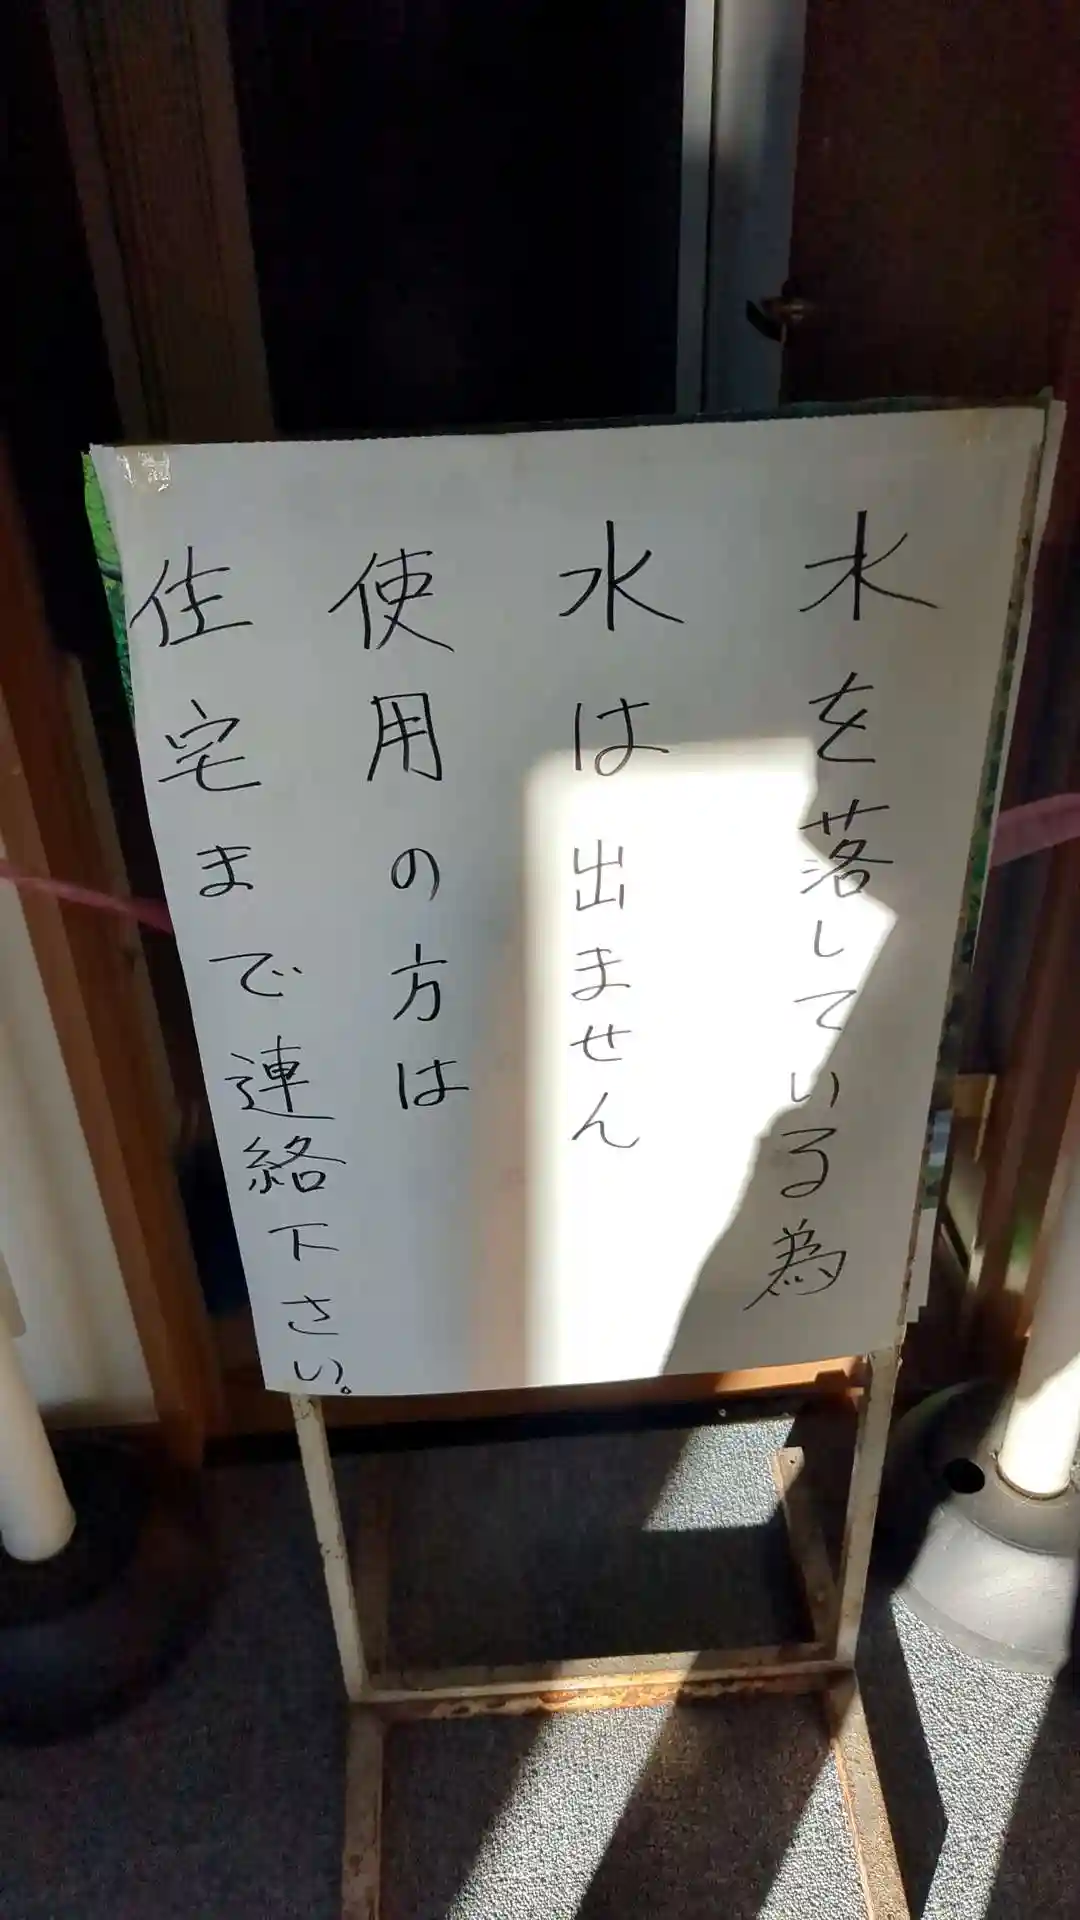 水を落している為
水は出ません
使用の方は
住宅まで連絡下さい。